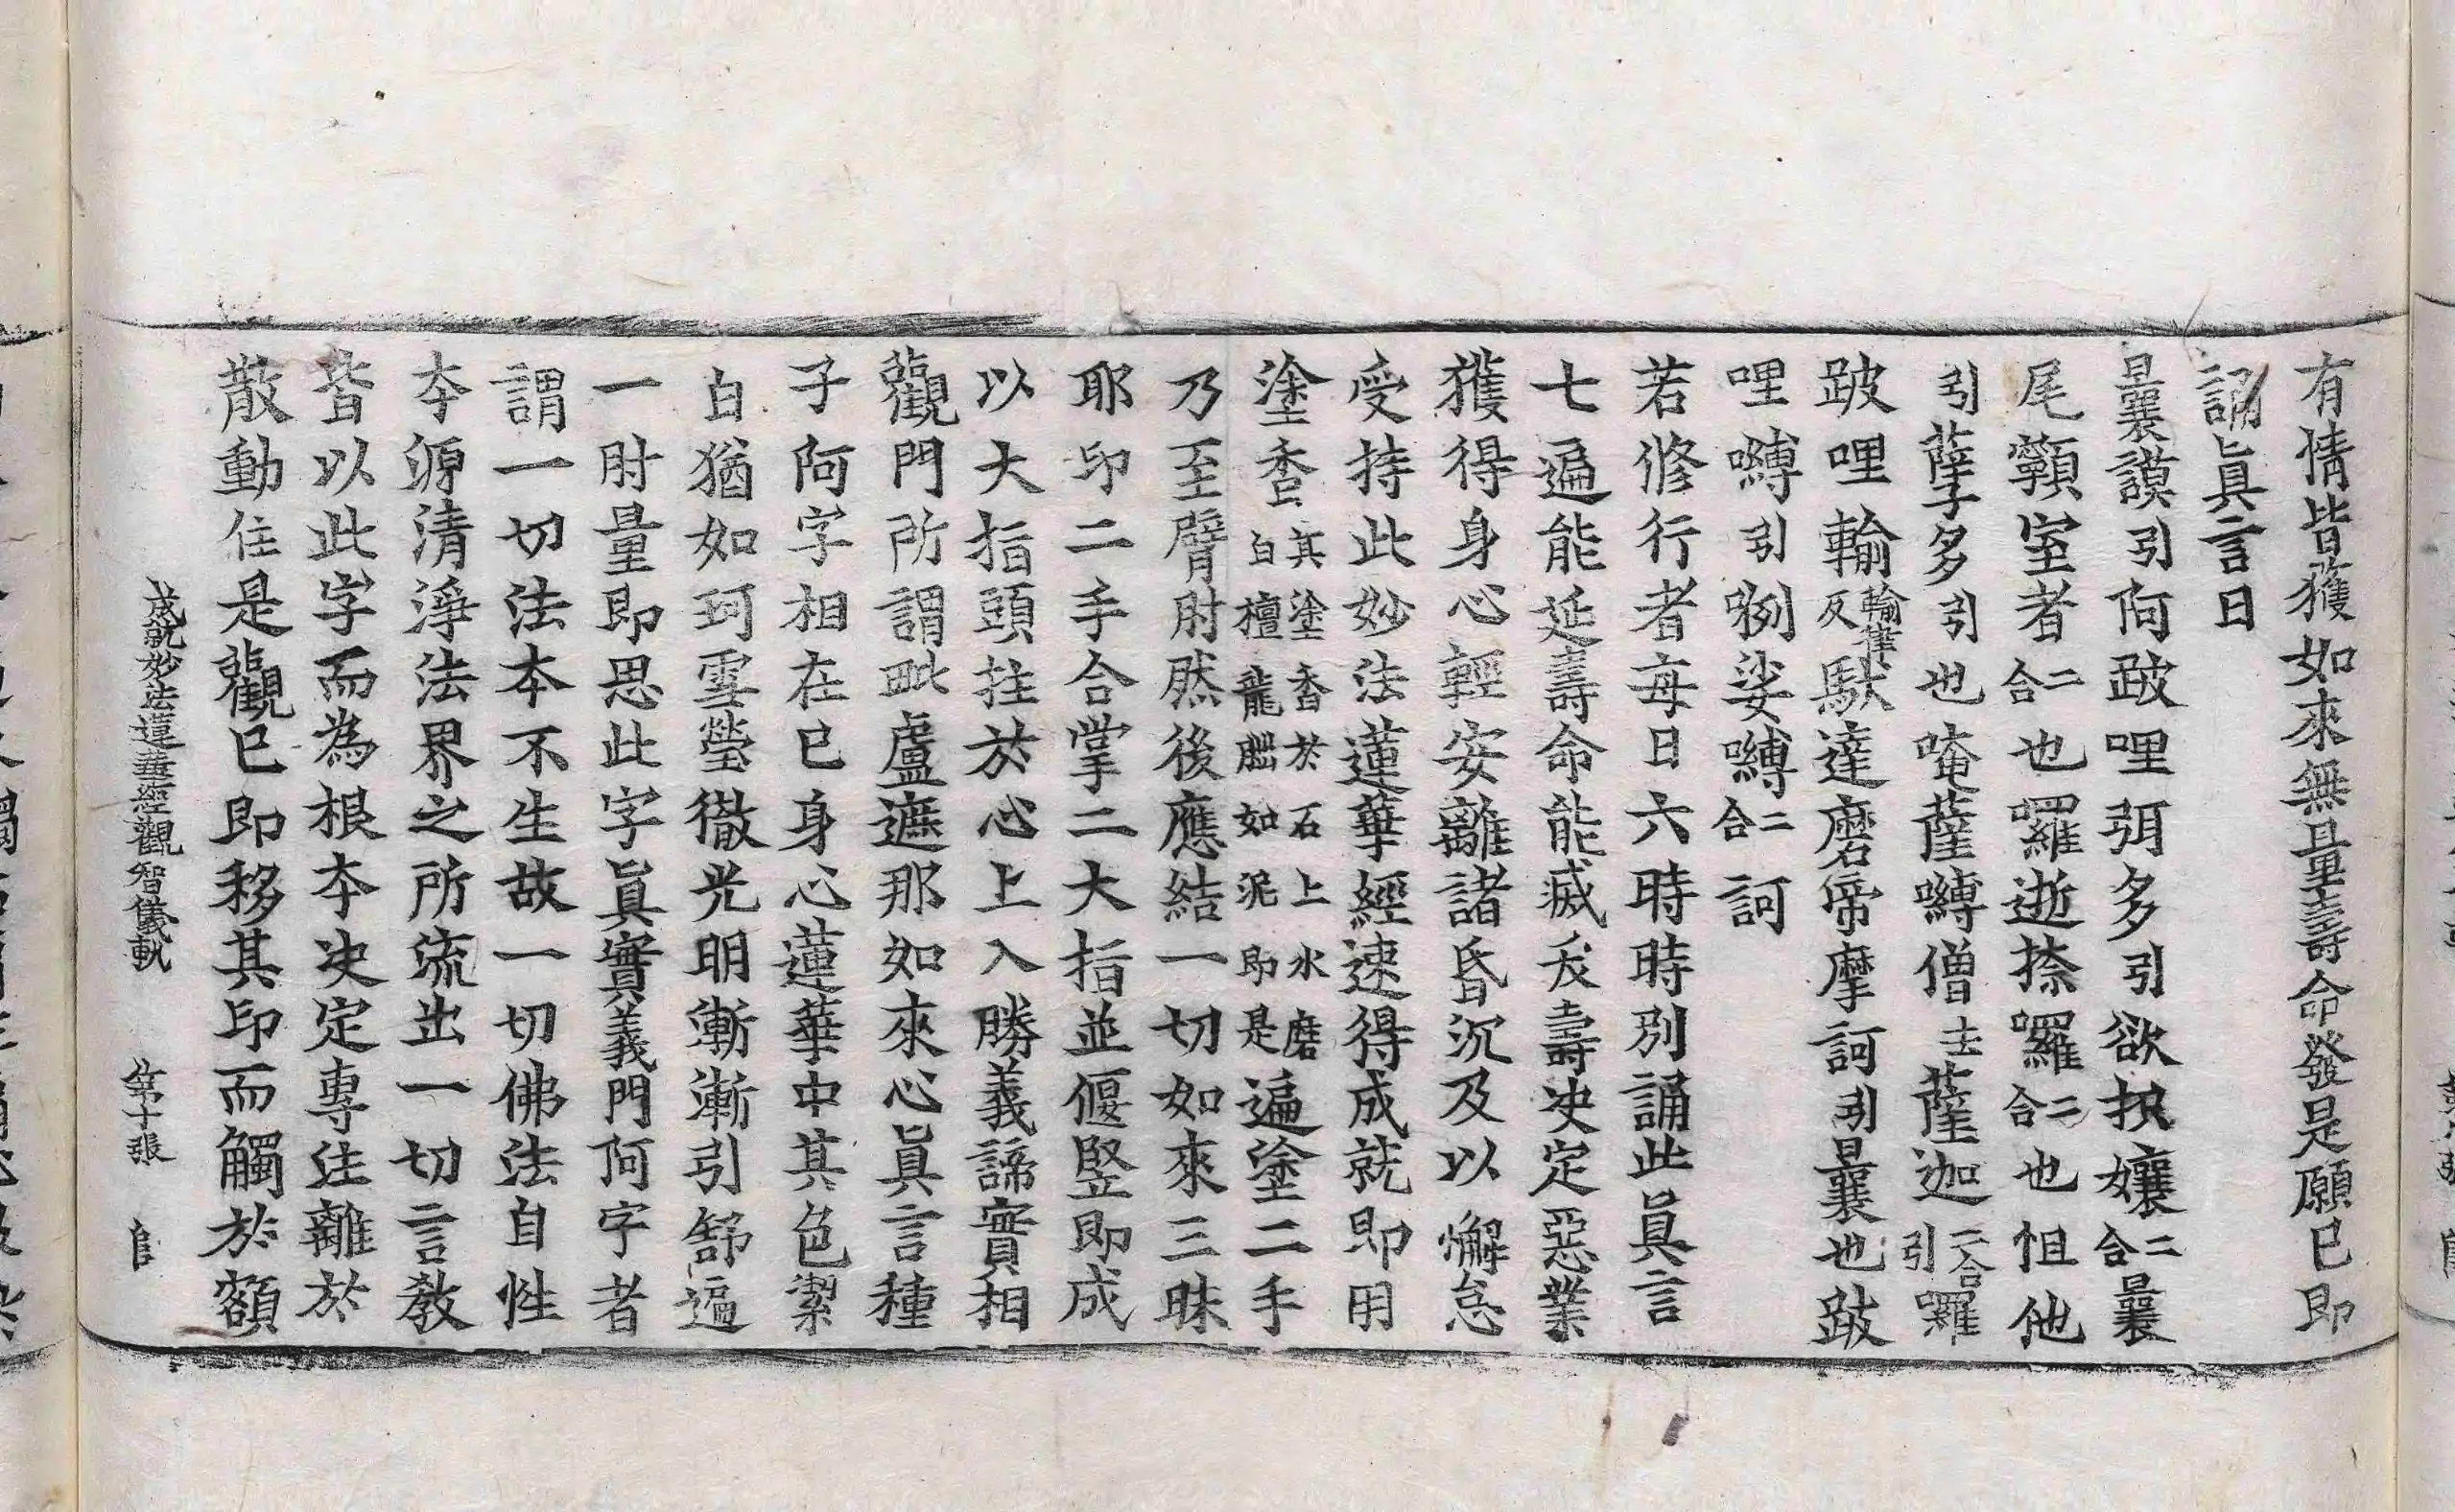 有情皆獲如來無量壽命發是願已即
誦眞言曰
曩謨引阿跛哩弭多引欲抧孃二合曩
尾䫂室者二合也囉逝捺囉二合也怛他
引孽多引也唵薩嚩僧去薩迦二合引囉
跛哩輸輸律反馱達磨帝摩訶引曩也跛
哩嚩引咧娑嚩二合訶
若修行者每日六時時別誦此眞言
七遍能延壽命能滅夭壽决定惡業
獲得身心輕安離諸昏沉及以懈怠
受持此妙法蓮華經速得成就即用
塗香其塗香於石上水磨白檀龍腦如泥即是遍塗二手
乃至臂肘然後應結一切如來三昧
耶印二手合掌二大指並偃竪即成
以大指頭拄於心上入勝義諦實相
觀門所謂毗盧遮那如來心眞言種
子阿字相在已身心蓮華中其色潔
白猶如珂雪瑩徹光明漸漸引舒遍
一肘量即思此字眞實義門阿字者
謂一切法本不生故一切佛法自性
夲源清淨法界之所流出一切言教
皆以此字而為根夲决定專注離於
散動住是觀已即移其印而觸於額
成就妙法蓮華經觀智儀軌 第十張